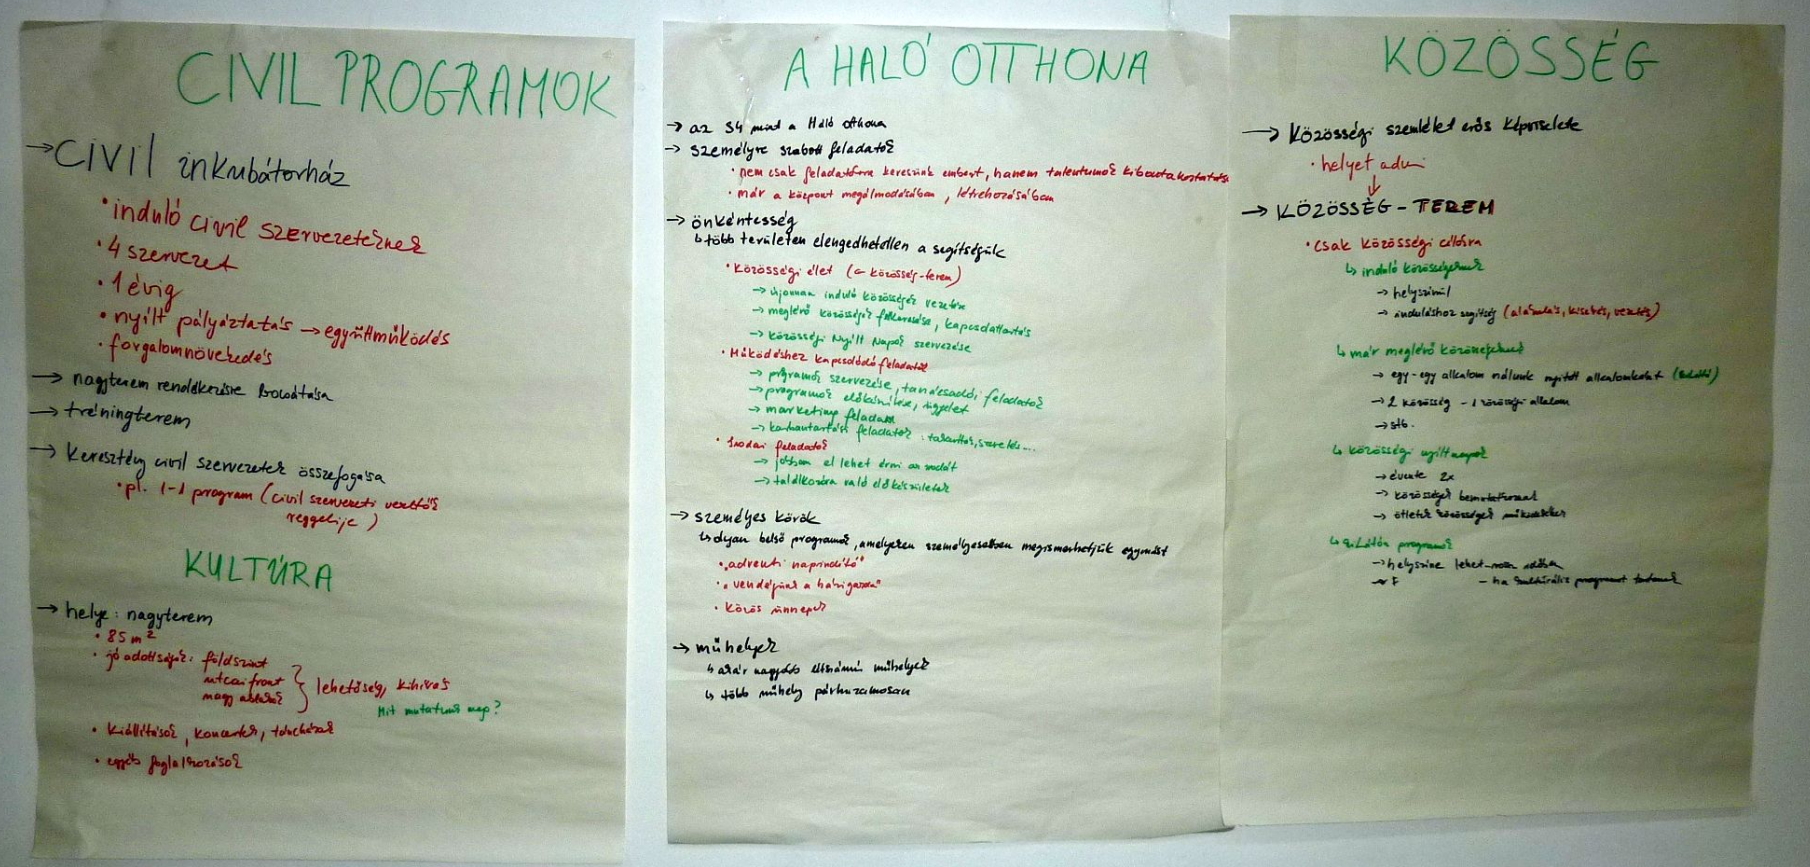 CIVIL PROGRAMOK
→ CIVIL inkubátorház
• induló civil szervezeteknek
• 4 szervezet
• 1 évig
• nyílt pályáztatás → együttműködés
• forgalomnövekedés
→ nagyterem rendelkezésre bocsátása
→ tréningterem
→ Keresztény civil szervezetek összefogása
• pl. 1-1 program (civil szervezeti vezetők
reggelije)
KULTÚRA
→ helye: nagyterem
• 85 m²
• jó adottságok: földszint
utcai front
nagy ablakok
} lehetőség, kihívás
Mit mutatunk meg?
• kiállítások, koncertek, táncházak
• egyéb foglalkozások
A HALÓ OTTHONA
→ az S4 mint a Háló otthona
→ személyre szabott feladatok
• nem csak feladatokra keresünk embert, hanem talentumok kibontakoztatása
• már a központ megálmodásában, létrehozásában
→ önkéntesség
↳ több területen elengedhetetlen a segítségük
• Közösségi élet (← közösség-terem)
→ újonnan induló közösségek vezetése
→ meglévő közösségek felkeresése, kapcsolattartás
→ közösségi Nyílt Napok szervezése
• Működéshez kapcsolódó feladatok
→ programok szervezése, tanácsadói feladatok
→ programok előkészítése, ügyelet
→ marketing feladatok
→ karbantartási feladatok: takarítás, szerelés...
• Irodai feladatok
→ jobban el lehet érni az irodát
→ találkozóra való előkészületek
→ személyes körök
↳ olyan belső programok, amelyeken személyesebben megismerhetjük egymást
• „adventi naprindító"
• „vendégünk a házigazda"
• közös ünnepek
→ műhelyek
↳ akár nagyobb létszámú műhelyek
↳ több műhely párhuzamosan
KÖZÖSSÉG
→ Közösségi szemlélet erős képviselete
• helyet adni
↓
→ KÖZÖSSÉG - TEREM
• csak közösségi célokra
↳ induló közösségeknek
→ helyszínül
→ induláshoz segítség (alakulás, kísérés, vezetés)
↳ már meglévő közösségeknek
→ egy-egy alkalom nálunk nyitott alkalomként
→ 2 közösség - 1 közösségi alkalom
→ stb.
↳ közösségi nyílt napok
→ évente 2x
→ közösségek bemutatkoznak
→ ötletek közösségek működéséhez
programok
→ helyszíne lehet
- ha kulturális programot tartanak